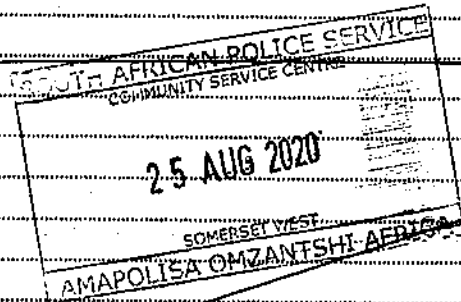 SOUTH AFRICAN POLICE SERVICE
COMMUNITY SERVICE CENTRE
25 AUG 2020
SOMERSET WEST
AMAPOLISA OMZANTSHI AFRICA